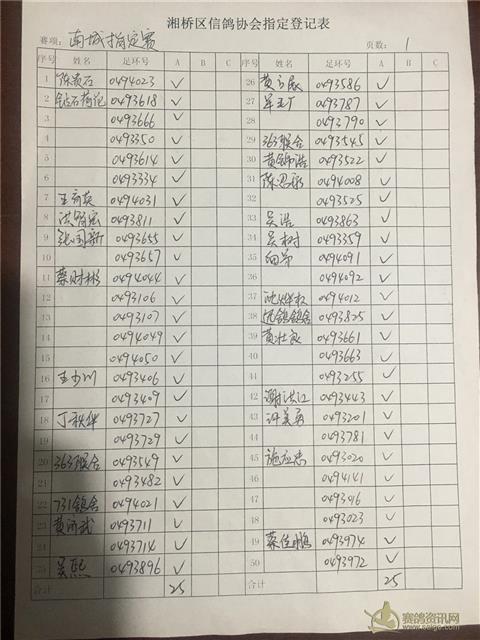 湘桥区信鸽协会指定登记表
赛项：南城指定赛 页数：1
序号 姓名 足环号 A B C 序号 姓名 足环号 A B C
1 陈贡石 0494023 ✓ 26 0493586 ✓
2 钻石荷花 0493618 ✓ 27 0493787 ✓
3 0493666 ✓ 28 0493790 ✓
4 0493350 ✓ 29 363联合 0493545 ✓
5 0493614 ✓ 30 黄锦浩 0493522 ✓
6 0493334 ✓ 31 0494008 ✓
7 0494031 ✓ 32 0493525 ✓
8 0493811 ✓ 33 吴浩 0493863 ✓
9 张国新 0493655 ✓ 34 吴树 0493359 ✓
10 0493657 ✓ 35 细弟 0494091 ✓
11 蔡财彬 0494044 ✓ 36 0494092 ✓
12 0493106 ✓ 37 0494012 ✓
13 0493107 ✓ 38 0493825 ✓
14 0494049 ✓ 39 黄壮良 0493661 ✓
15 0494050 ✓ 40 0493663 ✓
16 王少川 0493406 ✓ 41 0493255 ✓
17 0493409 ✓ 42 谢洪江 0493443 ✓
18 丁秋华 0493727 ✓ 43 许美勇 0493201 ✓
19 0493729 ✓ 44 0493781 ✓
20 363联合 0493549 ✓ 45 施应忠 0493020 ✓
21 0493482 ✓ 46 0494141 ✓
22 731鸽舍 0494021 ✓ 47 ✓
23 0493711 ✓ 48 0493023 ✓
24 0493714 ✓ 49 蔡佳鹏 0493974 ✓
25 吴熙 0493896 ✓ 50 0493972 ✓
合计 25 合计 25
赛鸽资讯网
www.saige.com